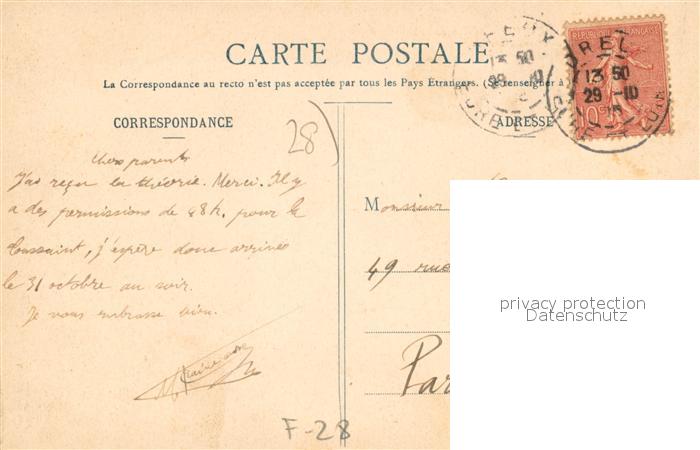 CARTE POSTALE
La Correspondance au recto n'est pas acceptée par tous les Pays Étrangers. (Se renseigner à
CORRESPONDANCE
ADRESSE
28
Chers parents
J'ai reçu la théorie. Merci. Il y
a des permissions de 48h. pour la
Toussaint, j'espère donc arriver
le 31 octobre au soir.
Je vous embrasse bien.
Monsieur
49 rue
Par
F-28
REPUBLIQUE FRANÇAISE
10c
DREUX
13 50
29 -10
EURE
DREUX
13 50
29 -10
privacy protection
Datenschutz